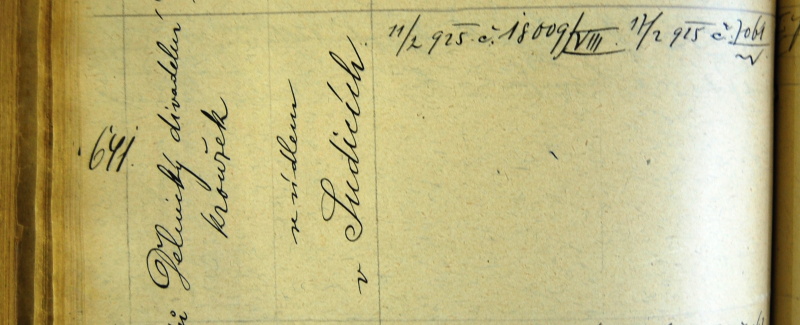 641.
Dělnický divadelní
kroužek
se sídlem
v Sudicích.
11/2 925 č. 18009/VIII. 17/2 925 č. 7061